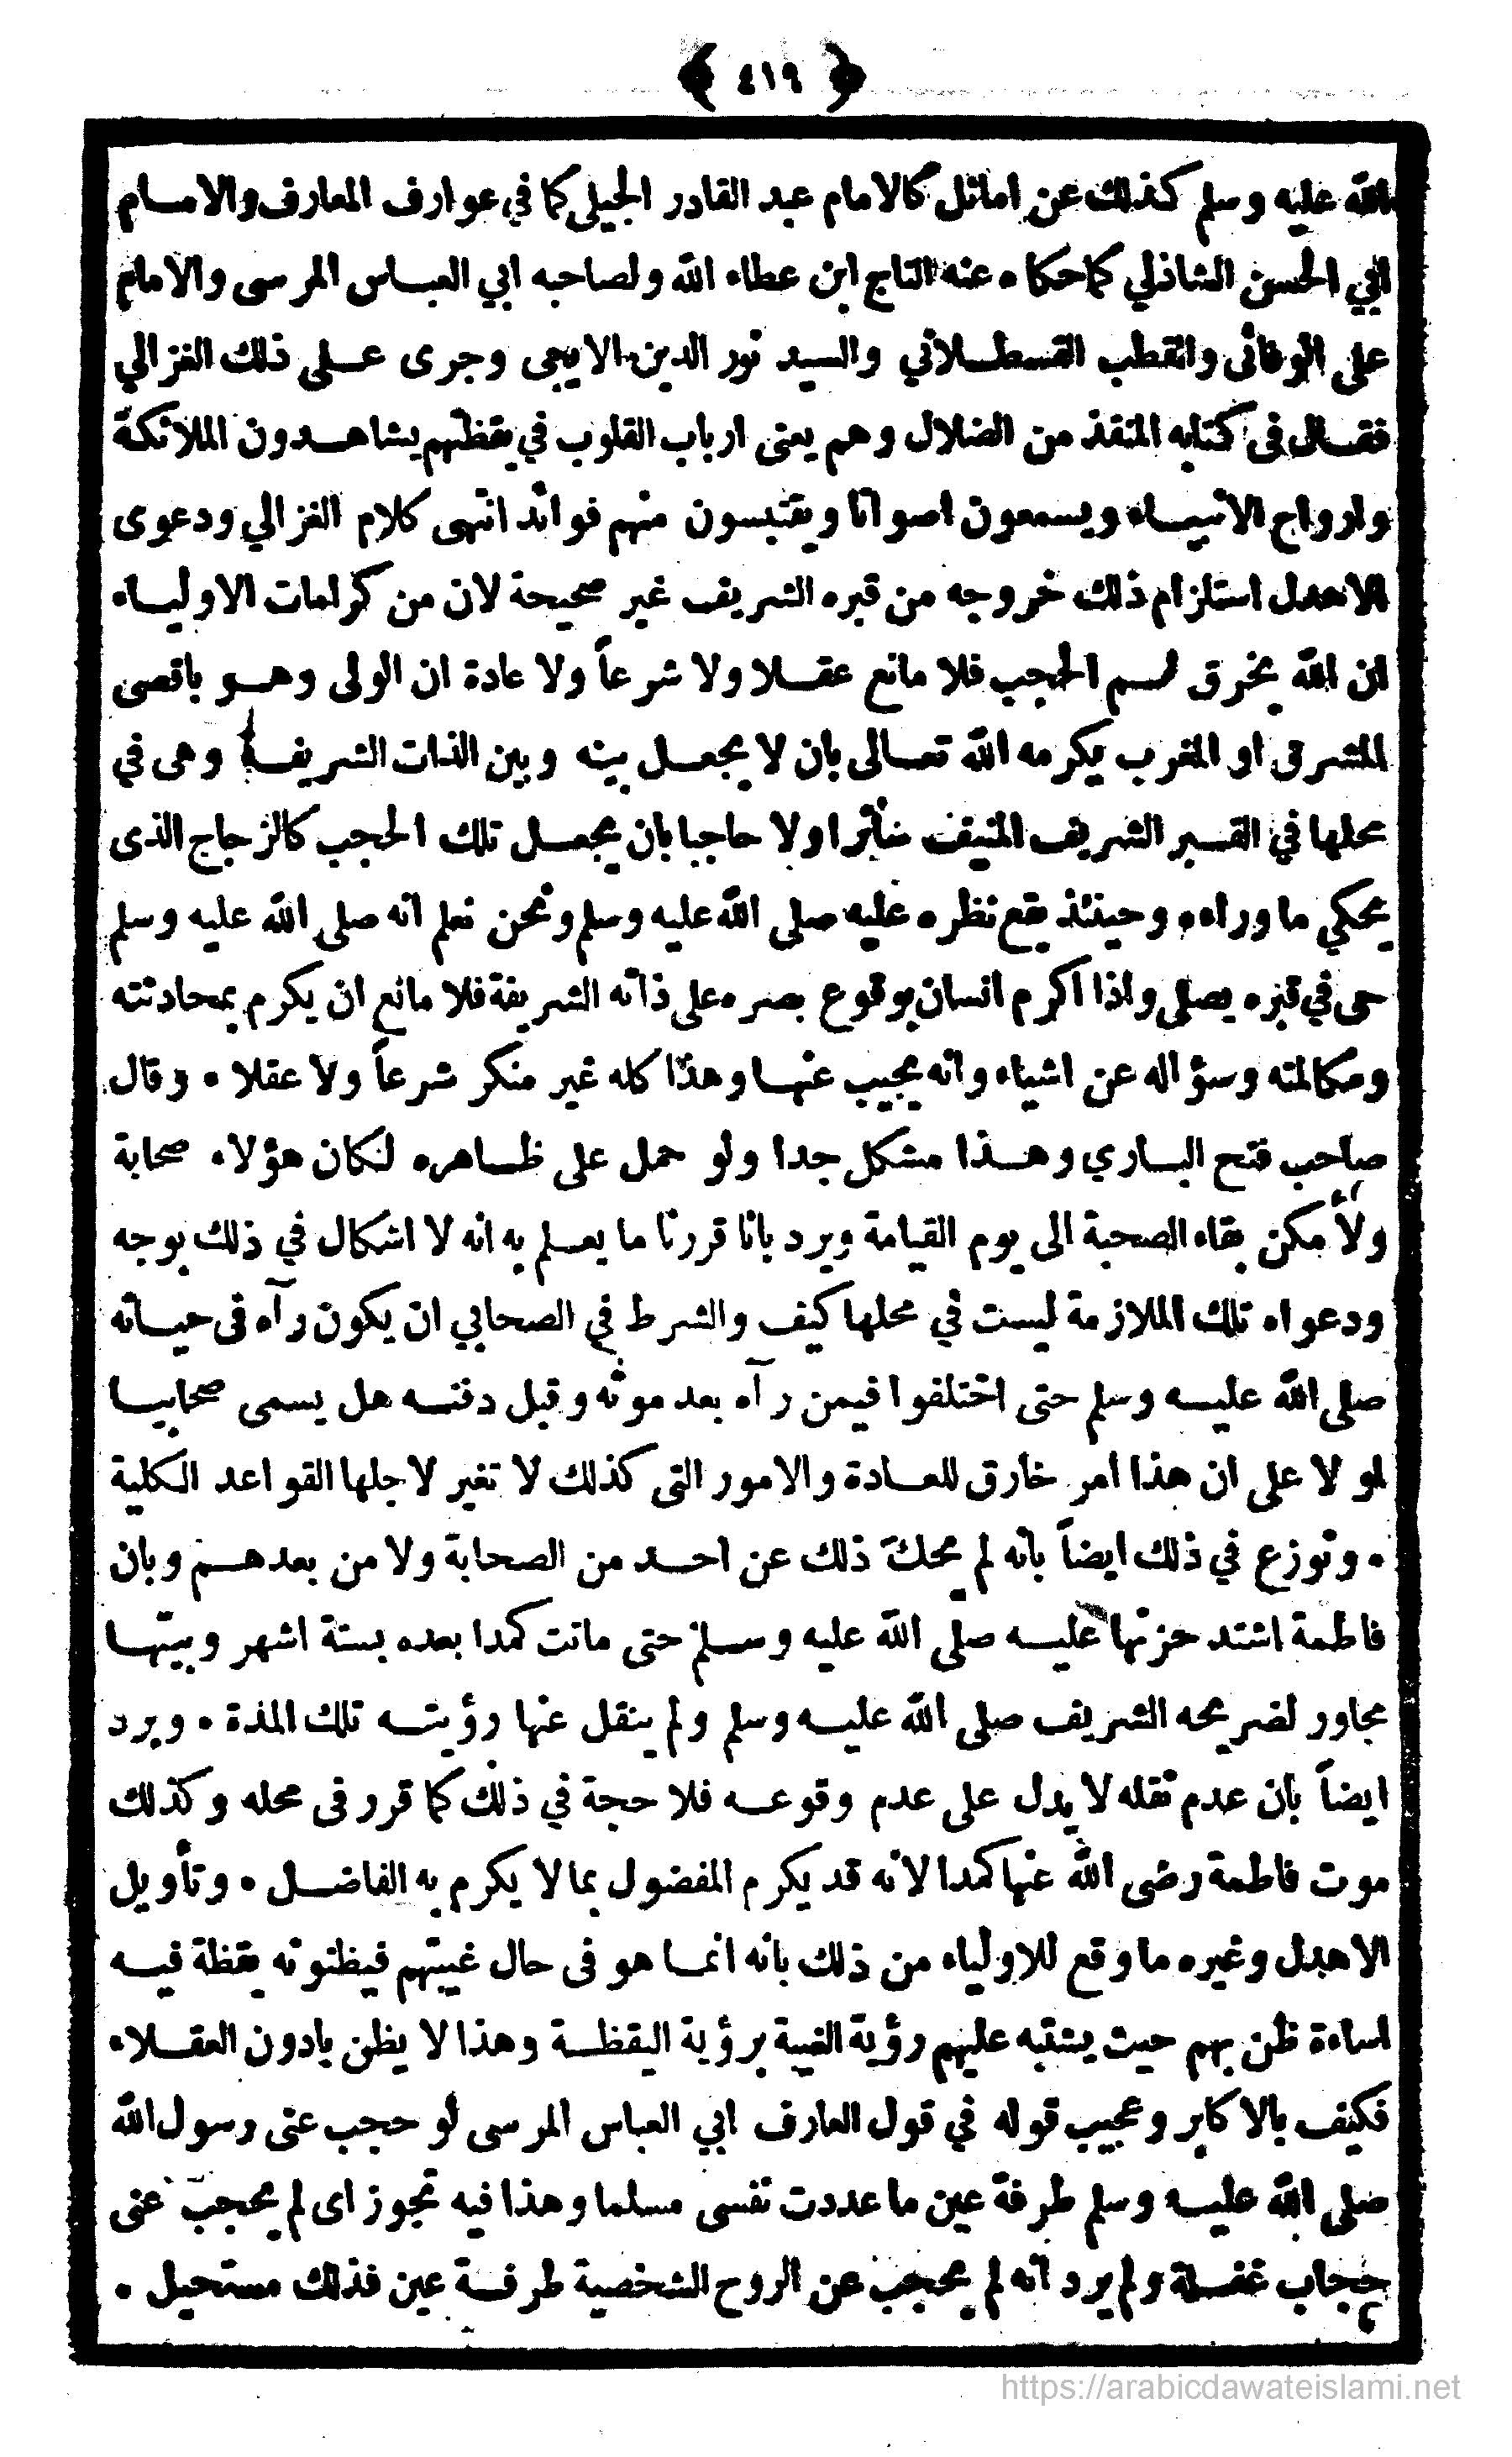 ﴿ ٤١٩ ﴾
الله عليه وسلم كذلك عن اماثل كالامام عبد القادر الجيلي كما في عوارف المعارف والامام
ابي الحسن الشاذلي كما حكاه عنه التاج ابن عطاء الله ولصاحبه ابي العباس المرسى والامام
على الوفائى والقطب القسطلاني والسيد نور الدين الايجى وجرى على ذلك الغزالي
فقال فى كتابه المنقذ من الضلال وهم يعنى ارباب القلوب في يقظتهم يشاهدون الملائكة
وارواح الانبياء ويسمعون اصواتا ويقتبسون منهم فوائد انتهى كلام الغزالي ودعوى
الاهدل استلزام ذلك خروجه من قبره الشريف غير صحيحة لان من كرامات الاولياء
ان الله يخرق لهم الحجب فلا مانع عقلا ولا شرعاً ولا عادة ان الولى وهو باقصى
المشرق او المغرب يكرمه الله تعالى بان لا يجعل بينه وبين الذات الشريفة وهى في
محلها في القبر الشريف المنيف ساترا ولا حاجبا بان يجعل تلك الحجب كالزجاج الذى
يحكي ما وراءه وحينئذ يقع نظره عليه صلى الله عليه وسلم ونحن نعلم انه صلى الله عليه وسلم
حى في قبره يصلى واذا اكرم انسان بوقوع بصره على ذاته الشريفة فلا مانع ان يكرم بمحادثته
ومكالمته وسؤاله عن اشياء وانه يجيب عنها وهذا كله غير منكر شرعاً ولا عقلا • وقال
صاحب فتح الباري وهذا مشكل جدا ولو حمل على ظاهره لكان هؤلاء صحابة
ولأمكن بقاء الصحبة الى يوم القيامة ويرد بانا قررنا ما يعلم به انه لا اشكال في ذلك بوجه
ودعواه تلك الملازمة ليست في محلها كيف والشرط في الصحابي ان يكون رآه فى حياته
صلى الله عليه وسلم حتى اختلفوا فيمن رآه بعد موته وقبل دفنه هل يسمى صحابيا
او لا على ان هذا امر خارق للعادة والامور التى كذلك لا تغير لاجلها القواعد الكلية
• ونوزع في ذلك ايضاً بانه لم يحك ذلك عن احد من الصحابة ولا من بعدهم وبان
فاطمة اشتد حزنها عليه صلى الله عليه وسلم حتى ماتت كمدا بعده بستة اشهر وبيتها
مجاور لضريحه الشريف صلى الله عليه وسلم ولم ينقل عنها رؤيته تلك المدة • ويرد
ايضاً بان عدم نقله لا يدل على عدم وقوعه فلا حجة في ذلك كما قرر فى محله وكذلك
موت فاطمة رضى الله عنها كمدا لانه قد يكرم المفضول بما لا يكرم به الفاضل • وتأويل
الاهدل وغيره ما وقع للاولياء من ذلك بانه انما هو فى حال غيبتهم فيظنونه يقظة فيه
اساءة ظن بهم حيث يشتبه عليهم رؤية الغيبة برؤية اليقظة وهذا لا يظن بادون العقلاء
فكيف بالاكابر وعجيب قوله في قول العارف ابي العباس المرسى لو حجب عنى رسول الله
صلى الله عليه وسلم طرفة عين ما عددت نفسى مسلما وهذا فيه تجوز اى لم يحجب عنى
حجاب غفلة ولم يرد انه لم يحجب عن الروح الشخصية طرفة عين فذلك مستحيل •
https://arabicdawateislami.net